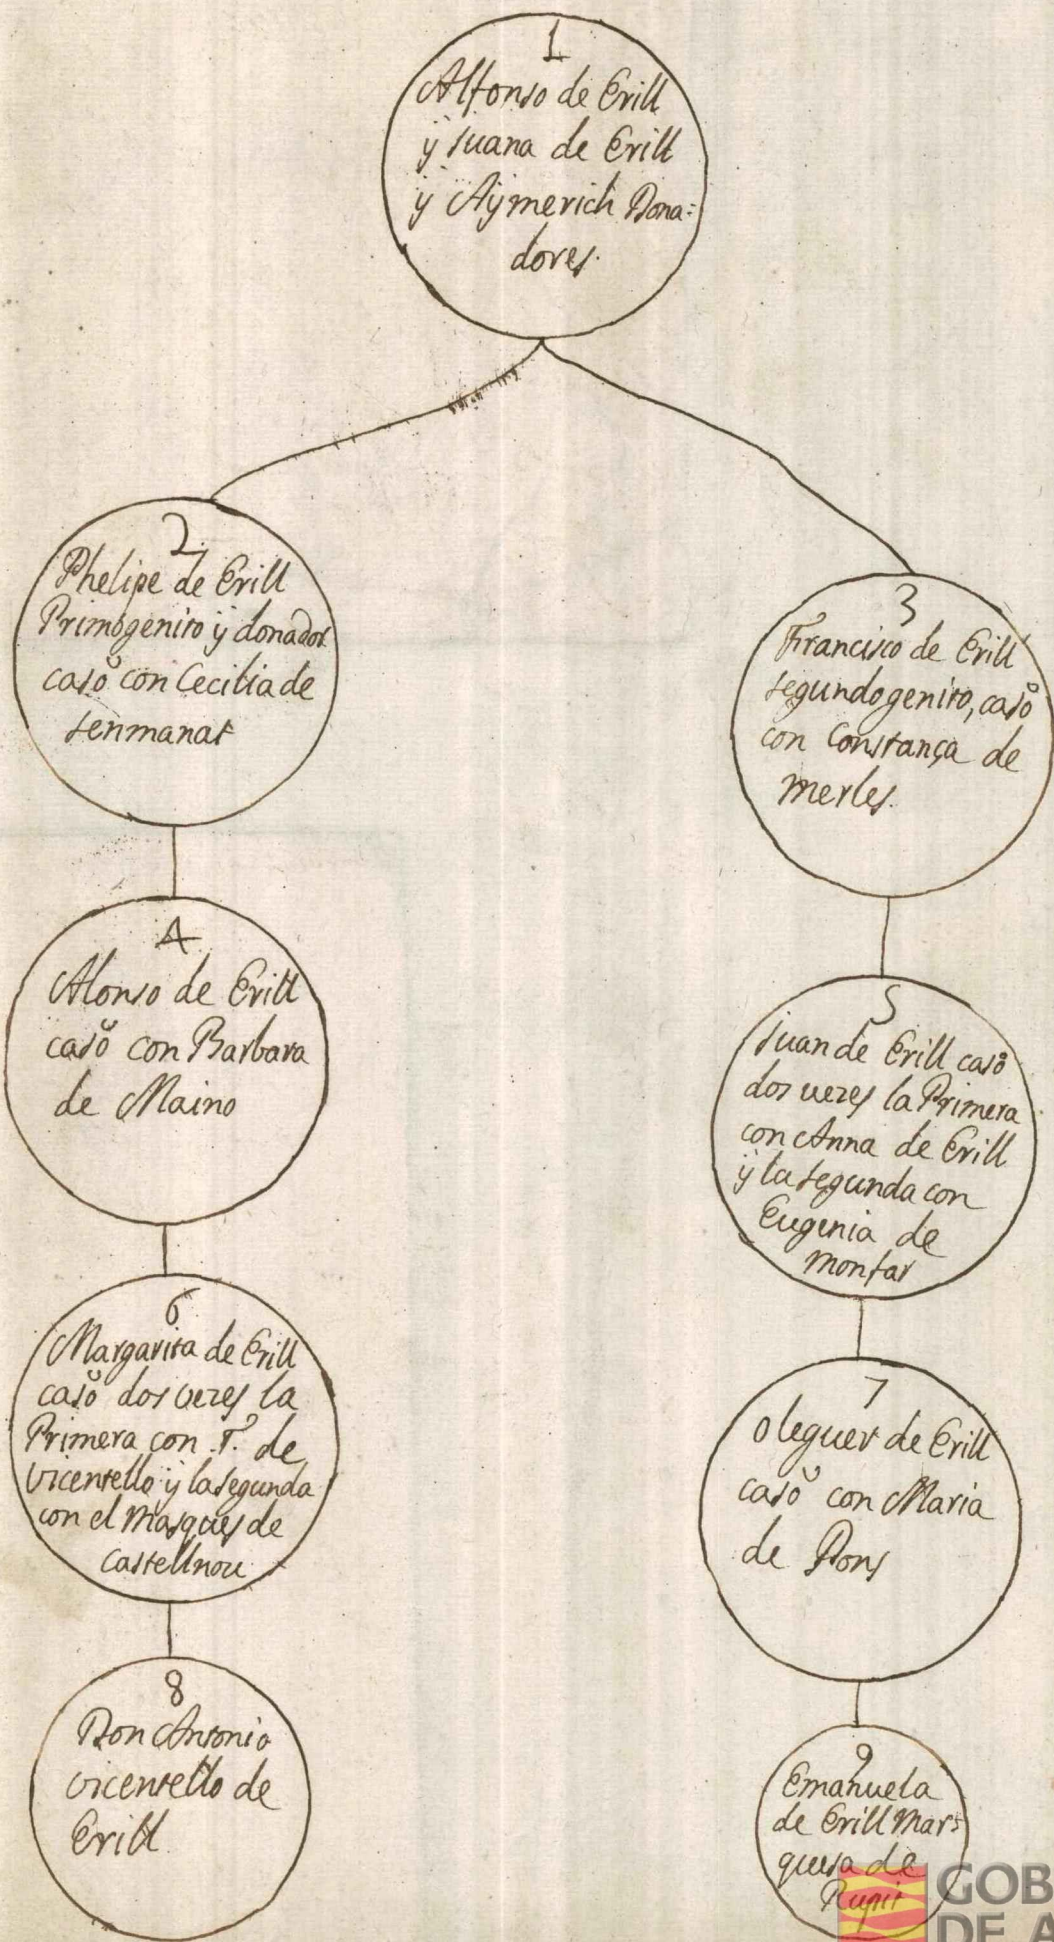 1
Alfonso de Erill
y Juana de Erill
y Aymerich Dona=
dores.
2
Phelipe de Erill
Primogenito y donador
casò con Cecilia de
senmanat
3
Francisco de Erill
segundogenito, casò
con Constança de
merles.
4
Alonso de Erill
casò con Barbara
de Maino
5
Juan de Erill casò
dos vezes la Primera
con Anna de Erill
y la segunda con
Eugenia de
montar
6
Margarita de Erill
casò dos vezes la
Primera con F. de
Vicentello y la segunda
con el Marques de
Castellnou
7
oleguer de Erill
casò con Maria
de Pons
8
Don Antonio
vicentello de
Erill
9
Emanuela
de Erill Mar=
quesa de
Rupit
GOB
DE A